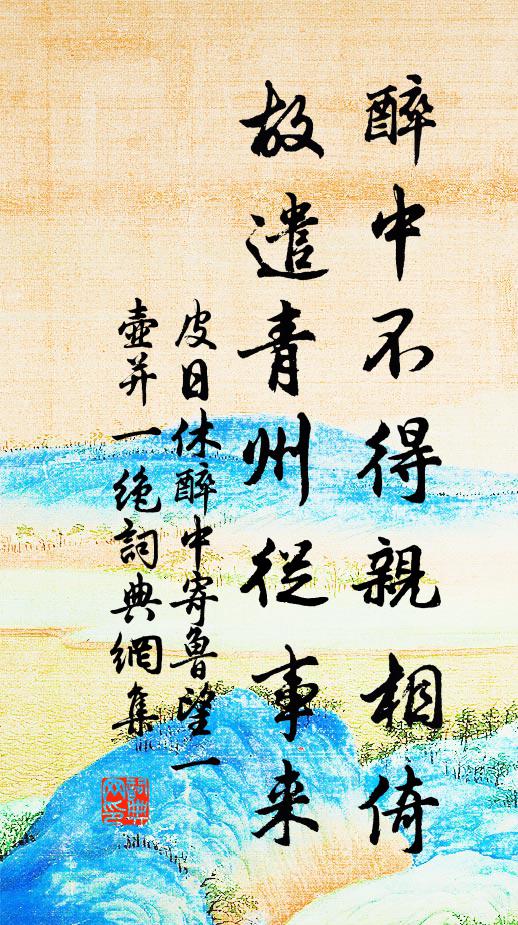 醉中不得親相倚
故遣青州從事来
皮日休醉中寄魯望一
壺并一絶詞典網集